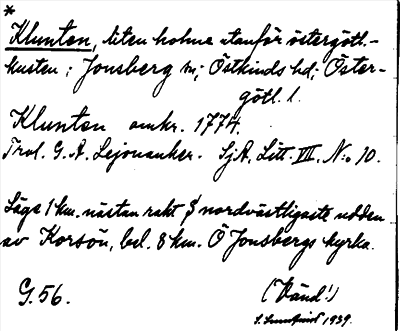 *
Klunten, liten holme utanför östergötl.-
kusten; Jonsberg sn; Östkinds hd; Öster-
götl. l.
Klunten omkr. 1774.
Trol. G. A. Lejonanker. SjA, Litt. III, No 10.
Lågs 1 km. nästan rakt S nordvästligaste udden
av Korsön, bel. 8 km. Ö Jonsbergs kyrka.
G. 56.
(Vänd!)
1939.